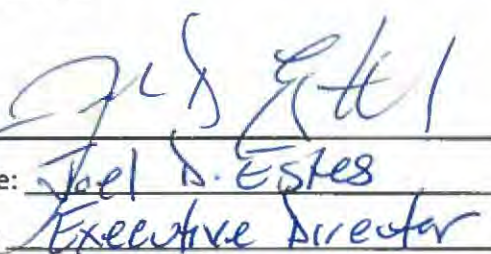 e: Joel D. Estes
Executive Director